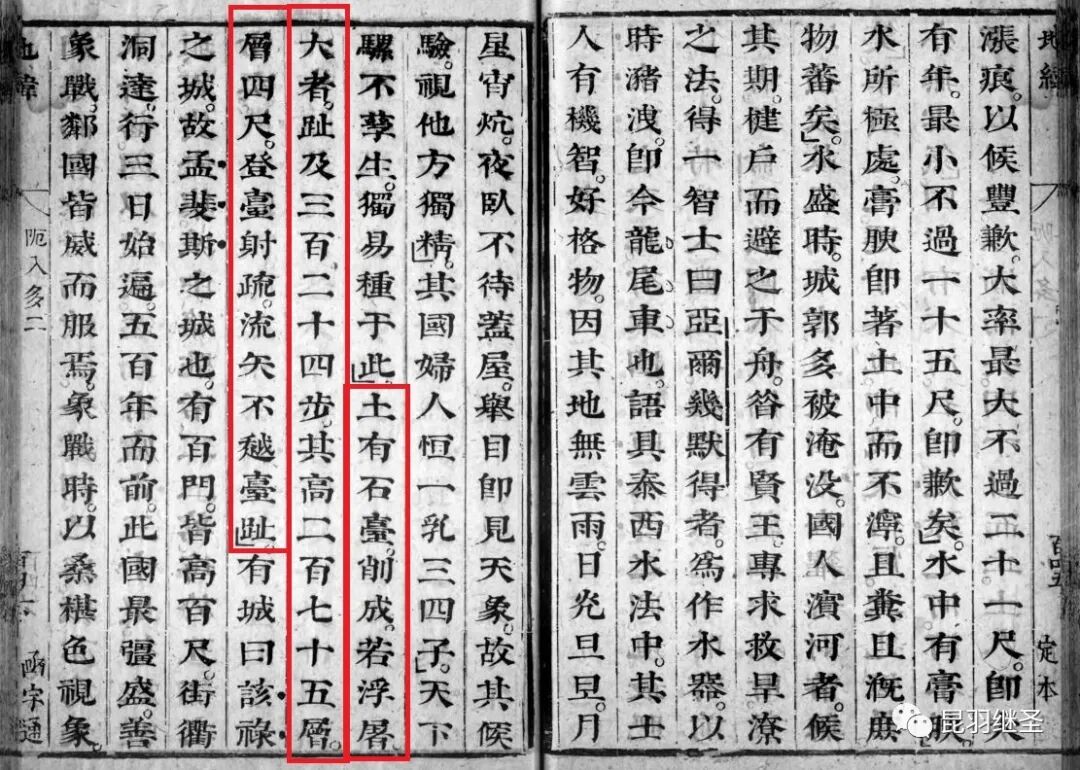 漲痕。以候豐歉。大率最大不過二十一尺。卽大
有年。最小不過一十五尺。卽歉矣。水中有膏腴
水所極處。膏腴卽著土中而不濘。且糞且漑。庶
物蕃矣。水盛時。城郭多被淹没。國人濱河者。候
其期。楗戶而避之于舟。昝有賢王。專求救旱潦
之法。得一智士曰亞爾幾默得者。爲作水器。以
時瀦洩。卽今龍尾車也。語具泰西水法中。其士
人有機智。好格物。因其地無雲雨。日炗旦旦。月
定本
星宵炕。夜臥不待蓋屋。舉目卽見天象。故其候
驗。視他方獨精。其國婦人恒一乳三四子。天下
騾不孳生。獨易種于此。土有石臺。削成。若浮屠
大者。趾及三百二十四步。其高二百七十五層。
層四尺。登臺射疏。流矢不越臺趾。有城曰該祿
之城。故孟斐斯之城也。有百門。皆高百尺。街衢
洞達。行三日始遍。五百年而前。此國最彊盛。善
象戰。鄰國皆威而服焉。象戰時。以桑椹色視象
地緯
阨入多二
函宇通
昆羽继圣